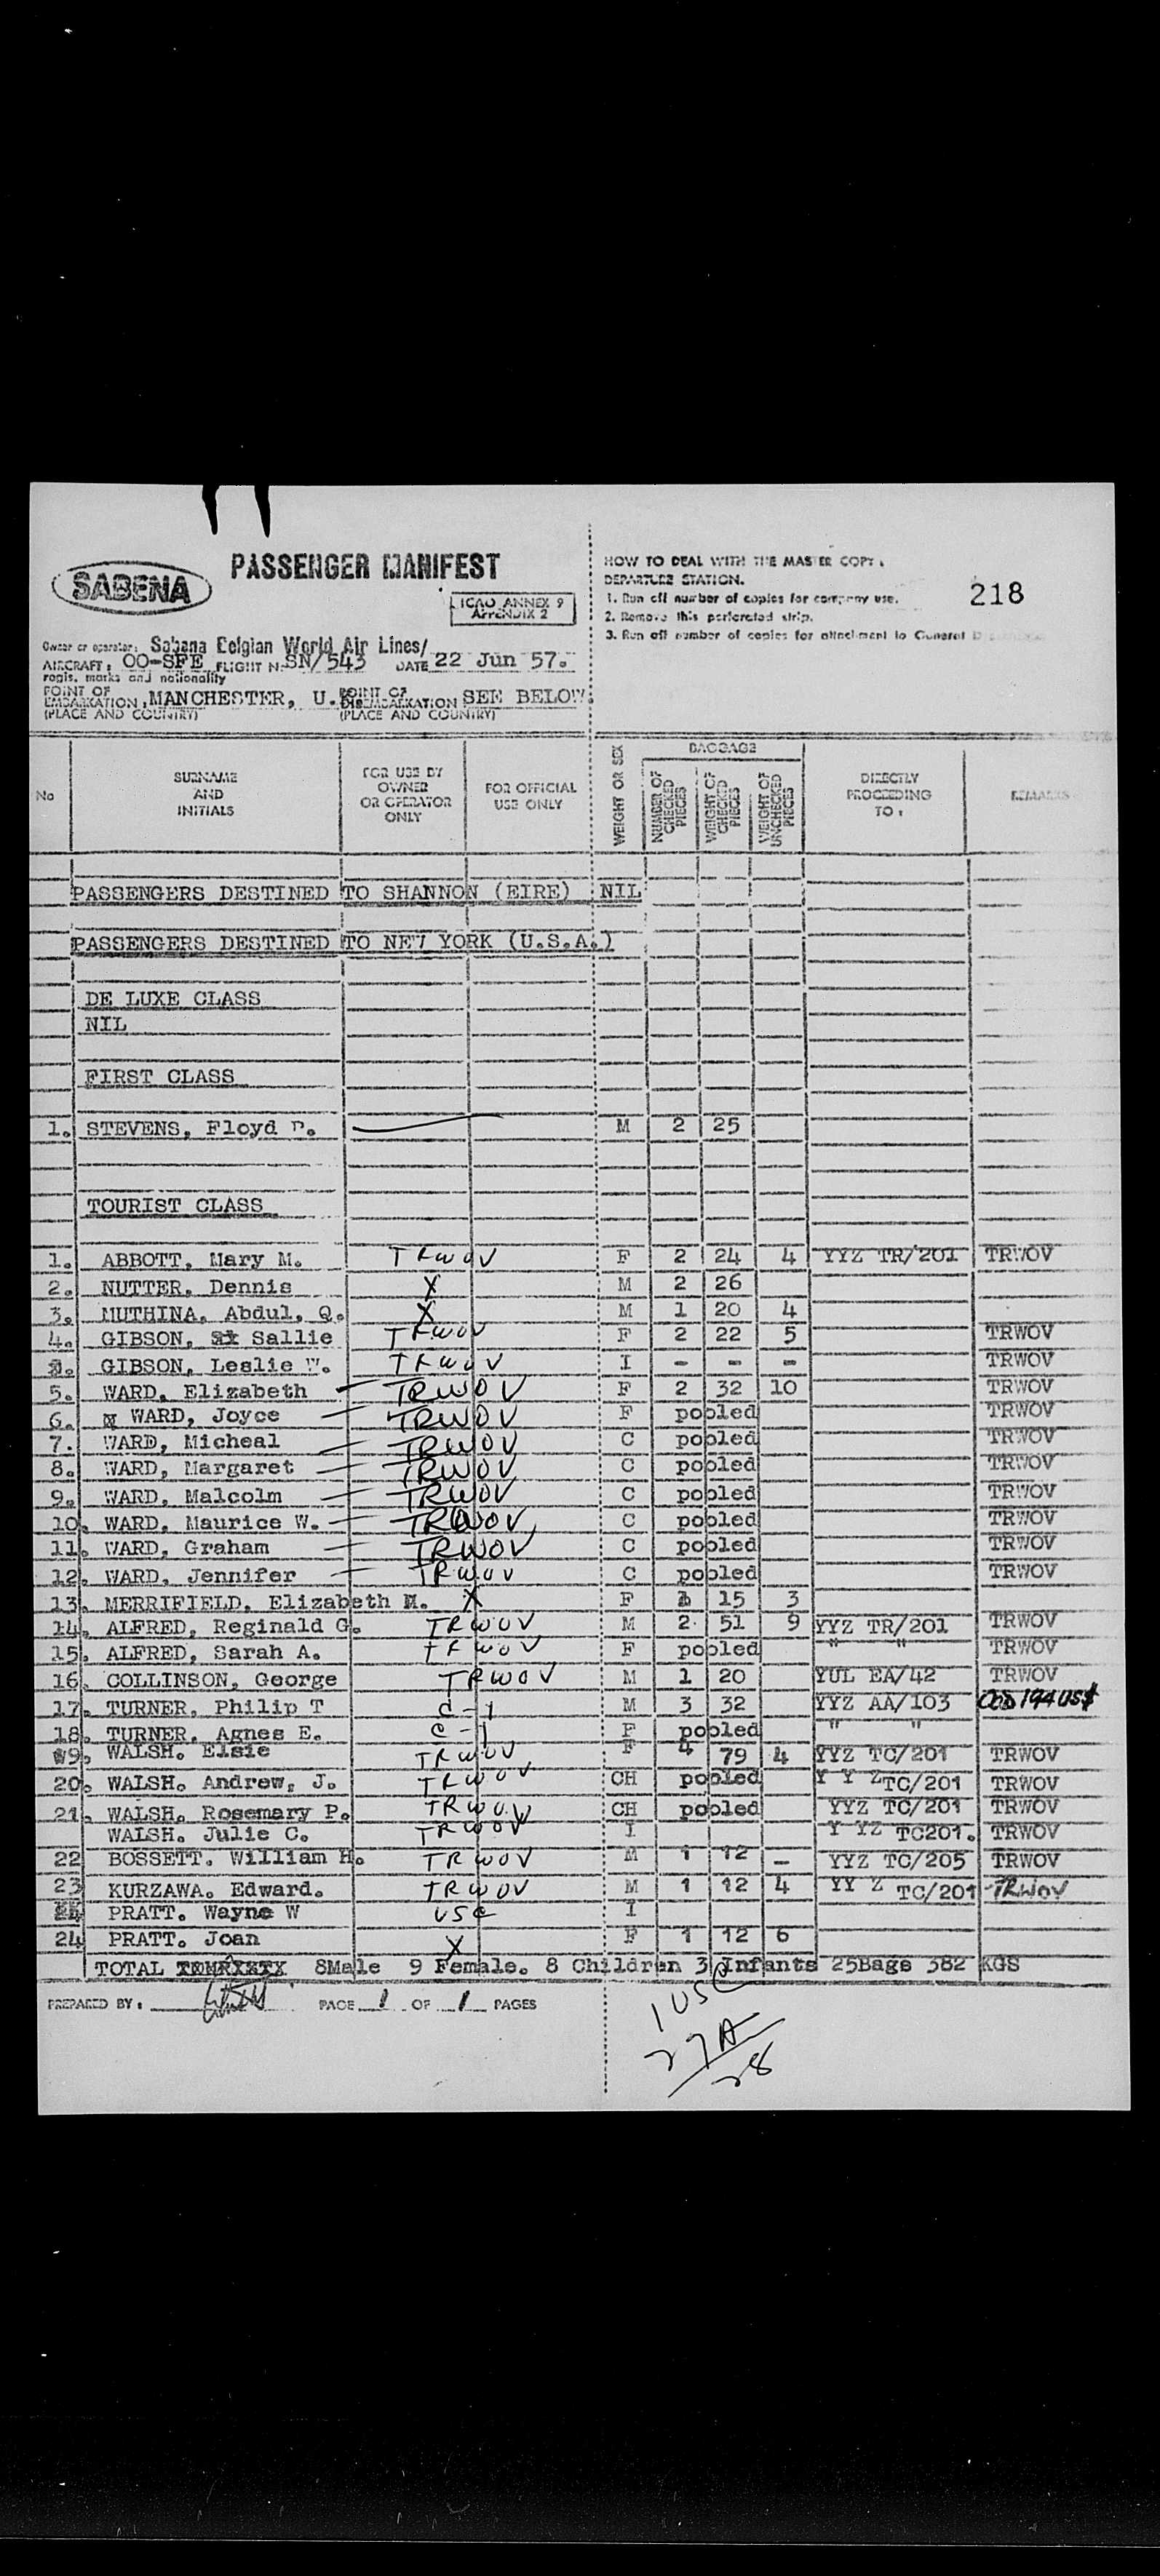 SABENA
PASSENGER MANIFEST
ICAO ANNEX 9
APPENDIX 2
Owner or operator: Sabena Belgian World Air Lines/
AIRCRAFT: OO-SFE FLIGHT N. SN/543 DATE 22 Jun 57.
regis. marks and nationality
POINT OF EMBARKATION: MANCHESTER, U. POINT OF DISEMBARKATION SEE BELOW.
(PLACE AND COUNTRY) (PLACE AND COUNTRY)
HOW TO DEAL WITH THE MASTER COPY.
DEPARTURE STATION.
1. Run off number of copies for company use.
2. Remove this perforated strip.
3. Run off number of copies for attachment to General
218
No
SURNAME AND INITIALS
FOR USE BY OWNER OR OPERATOR ONLY
FOR OFFICIAL USE ONLY
WEIGHT OR SEX
BAGGAGE
NUMBER OF CHECKED PIECES
WEIGHT OF CHECKED PIECES
WEIGHT OF UNCHECKED PIECES
DIRECTLY PROCEEDING TO:
REMARKS
PASSENGERS DESTINED TO SHANNON (EIRE) NIL
PASSENGERS DESTINED TO NEW YORK (U.S.A.)
DE LUXE CLASS
NIL
FIRST CLASS
1. STEVENS, Floyd M 2 25
TOURIST CLASS
1. ABBOTT, Mary M. TRWOV F 2 24 4 YYZ TR/201 TRWOV
2. NUTTER, Dennis X M 2 26
3. MUTHINA, Abdul, Q. X M 1 20 4
4. GIBSON, Sallie TRWOV F 2 22 5 TRWOV
GIBSON, Leslie W. TRWOV I - - - TRWOV
5. WARD, Elizabeth TRWOV F 2 32 10 TRWOV
6. WARD, Joyce TRWOV F pooled TRWOV
7. WARD, Micheal TRWOV C pooled TRWOV
8. WARD, Margaret TRWOV C pooled TRWOV
9. WARD, Malcolm TRWOV C pooled TRWOV
10. WARD, Maurice W. TRWOV C pooled TRWOV
11. WARD, Graham TRWOV C pooled TRWOV
12. WARD, Jennifer TRWOV C pooled TRWOV
13. MERRIFIELD, Elizabeth M. X F 1 15 3
14. ALFRED, Reginald G. TRWOV M 2 51 9 YYZ TR/201 TRWOV
15. ALFRED, Sarah A. TRWOV F pooled " " TRWOV
16. COLLINSON, George TRWOV M 1 20 YUL EA/42 TRWOV
17. TURNER, Philip T c-1 M 3 32 YYZ AA/103 194 US$
18. TURNER, Agnes E. c-1 F pooled " "
19. WALSH. Elsie TRWOV F 4 79 4 YYZ TC/201 TRWOV
20. WALSH. Andrew, J. TRWOV CH pooled Y Y Z TC/201 TRWOV
21. WALSH. Rosemary P. TRWOV CH pooled YYZ TC/201 TRWOV
WALSH. Julie C. TRWOV I Y YZ TC201. TRWOV
22 BOSSETT. William H. TRWOV M 1 12 - YYZ TC/205 TRWOV
23 KURZAWA. Edward. TRWOV M 1 12 4 YY Z TC/201 TRWOV
PRATT. Wayne W USC I
24 PRATT. Joan X F 1 12 6
TOTAL 8Male 9 Female. 8 Children 3 Infants 25Bags 382 KGS
PREPARED BY: PAGE 1 OF 1 PAGES
1 USC
27A
28